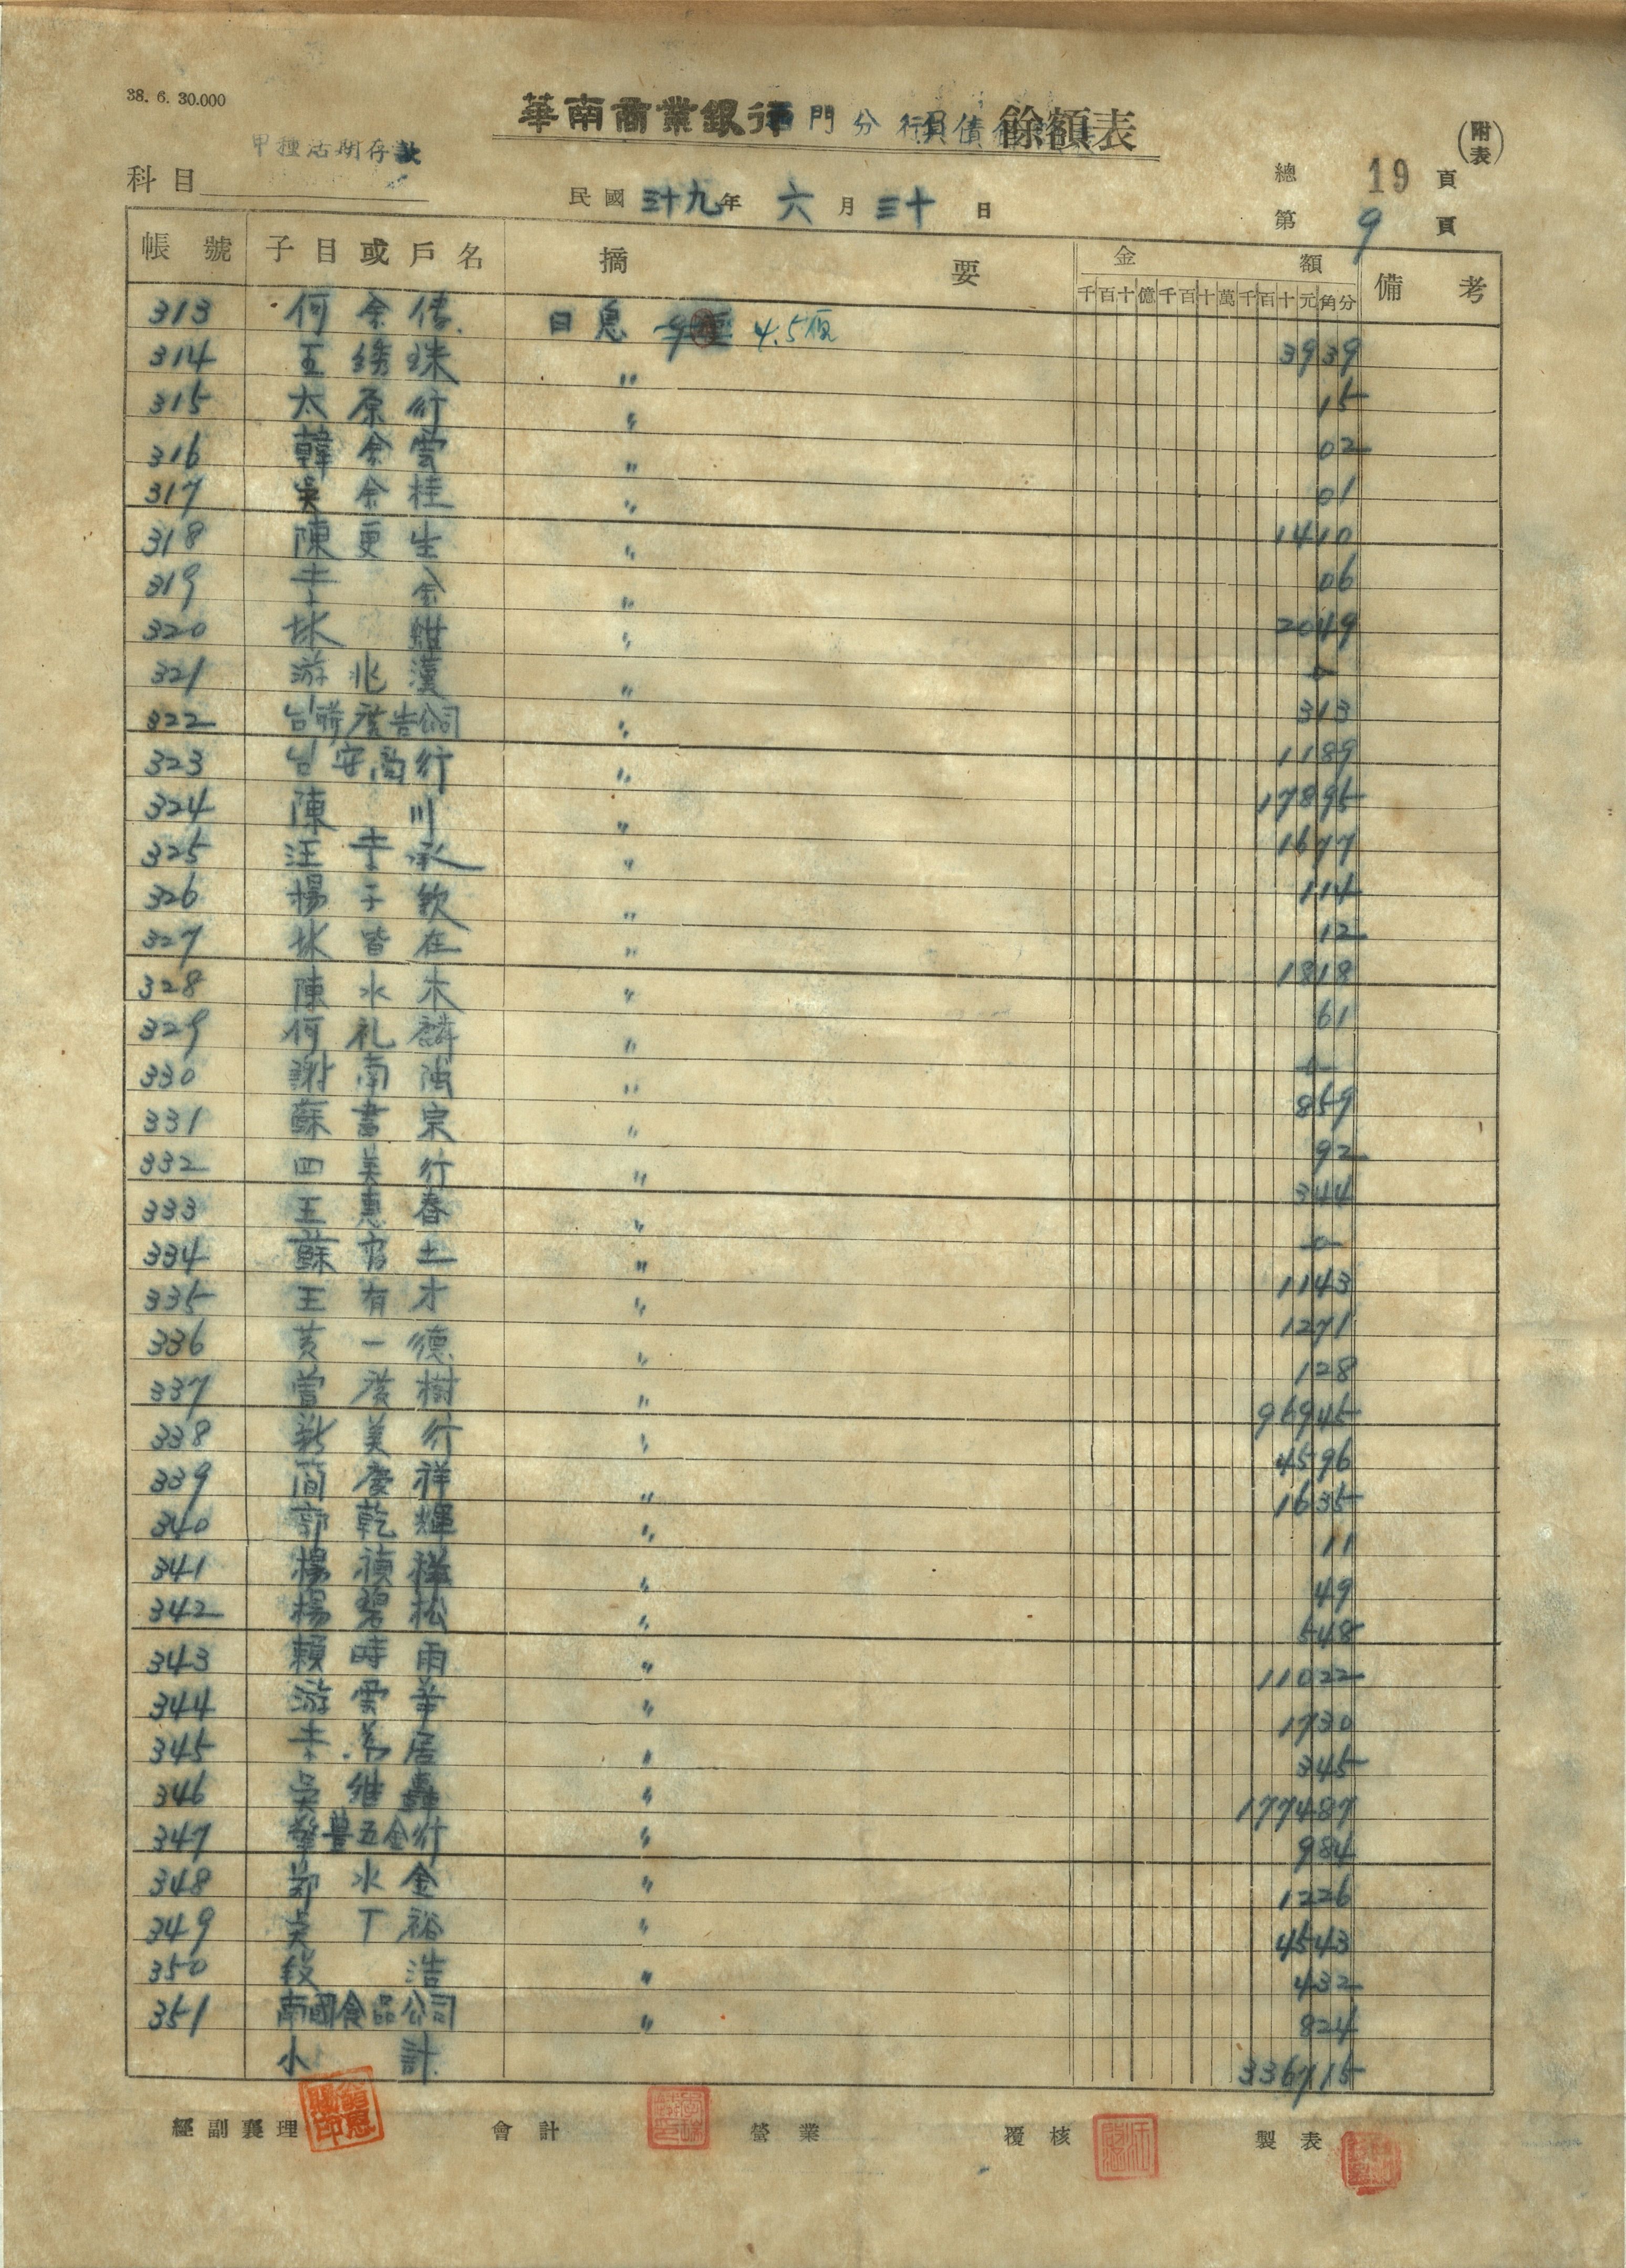 38. 6. 30.000
華南商業銀行西門分行負債科目餘額表
(附表)
甲種活期存款
科目
總 19 頁
民國三十九年 六月三十日
第 9 頁
帳號 子目或戶名 摘要 金額 備考
千百十億千百十萬千百十元角分
313 何余 日息 4.5厘 3939
314 王綉珠 〃 15
315 太原行 〃 02
316 韓余雲 〃 01
317 吳余桂 〃 1410
318 陳更生 〃 06
319 李金 〃 2049
320 林 〃 0
321 游兆漢 〃 313
322 台聯廣告公司 〃 1189
323 台安商行 〃 17895
324 陳川 〃 1677
325 汪李承 〃 114
326 楊子欽 〃 12
327 林皆在 〃 1818
328 陳水木 〃 61
329 何礼麟 〃 0
330 謝南 〃 859
331 蘇書宗 〃 92
332 四美行 〃 344
333 王惠春 〃 0
334 蘇土 〃 1143
335 王有才 〃 1271
336 黃一德 〃 128
337 曾廣樹 〃 96945
338 新美行 〃 4596
339 簡慶祥 〃 1635
340 郭乾輝 〃 11
341 楊禎祥 〃 49
342 楊碧松 〃 548
343 賴時雨 〃 11022
344 游雲華 〃 1730
345 李居 〃 345
346 吳維 〃 177487
347 肇豊五金行 〃 984
348 鄭水金 〃 1226
349 吳丁裕 〃 4543
350 段浩 〃 432
351 南國食品公司 〃 824
小計 336715
經副襄理 會計 營業 覆核 製表